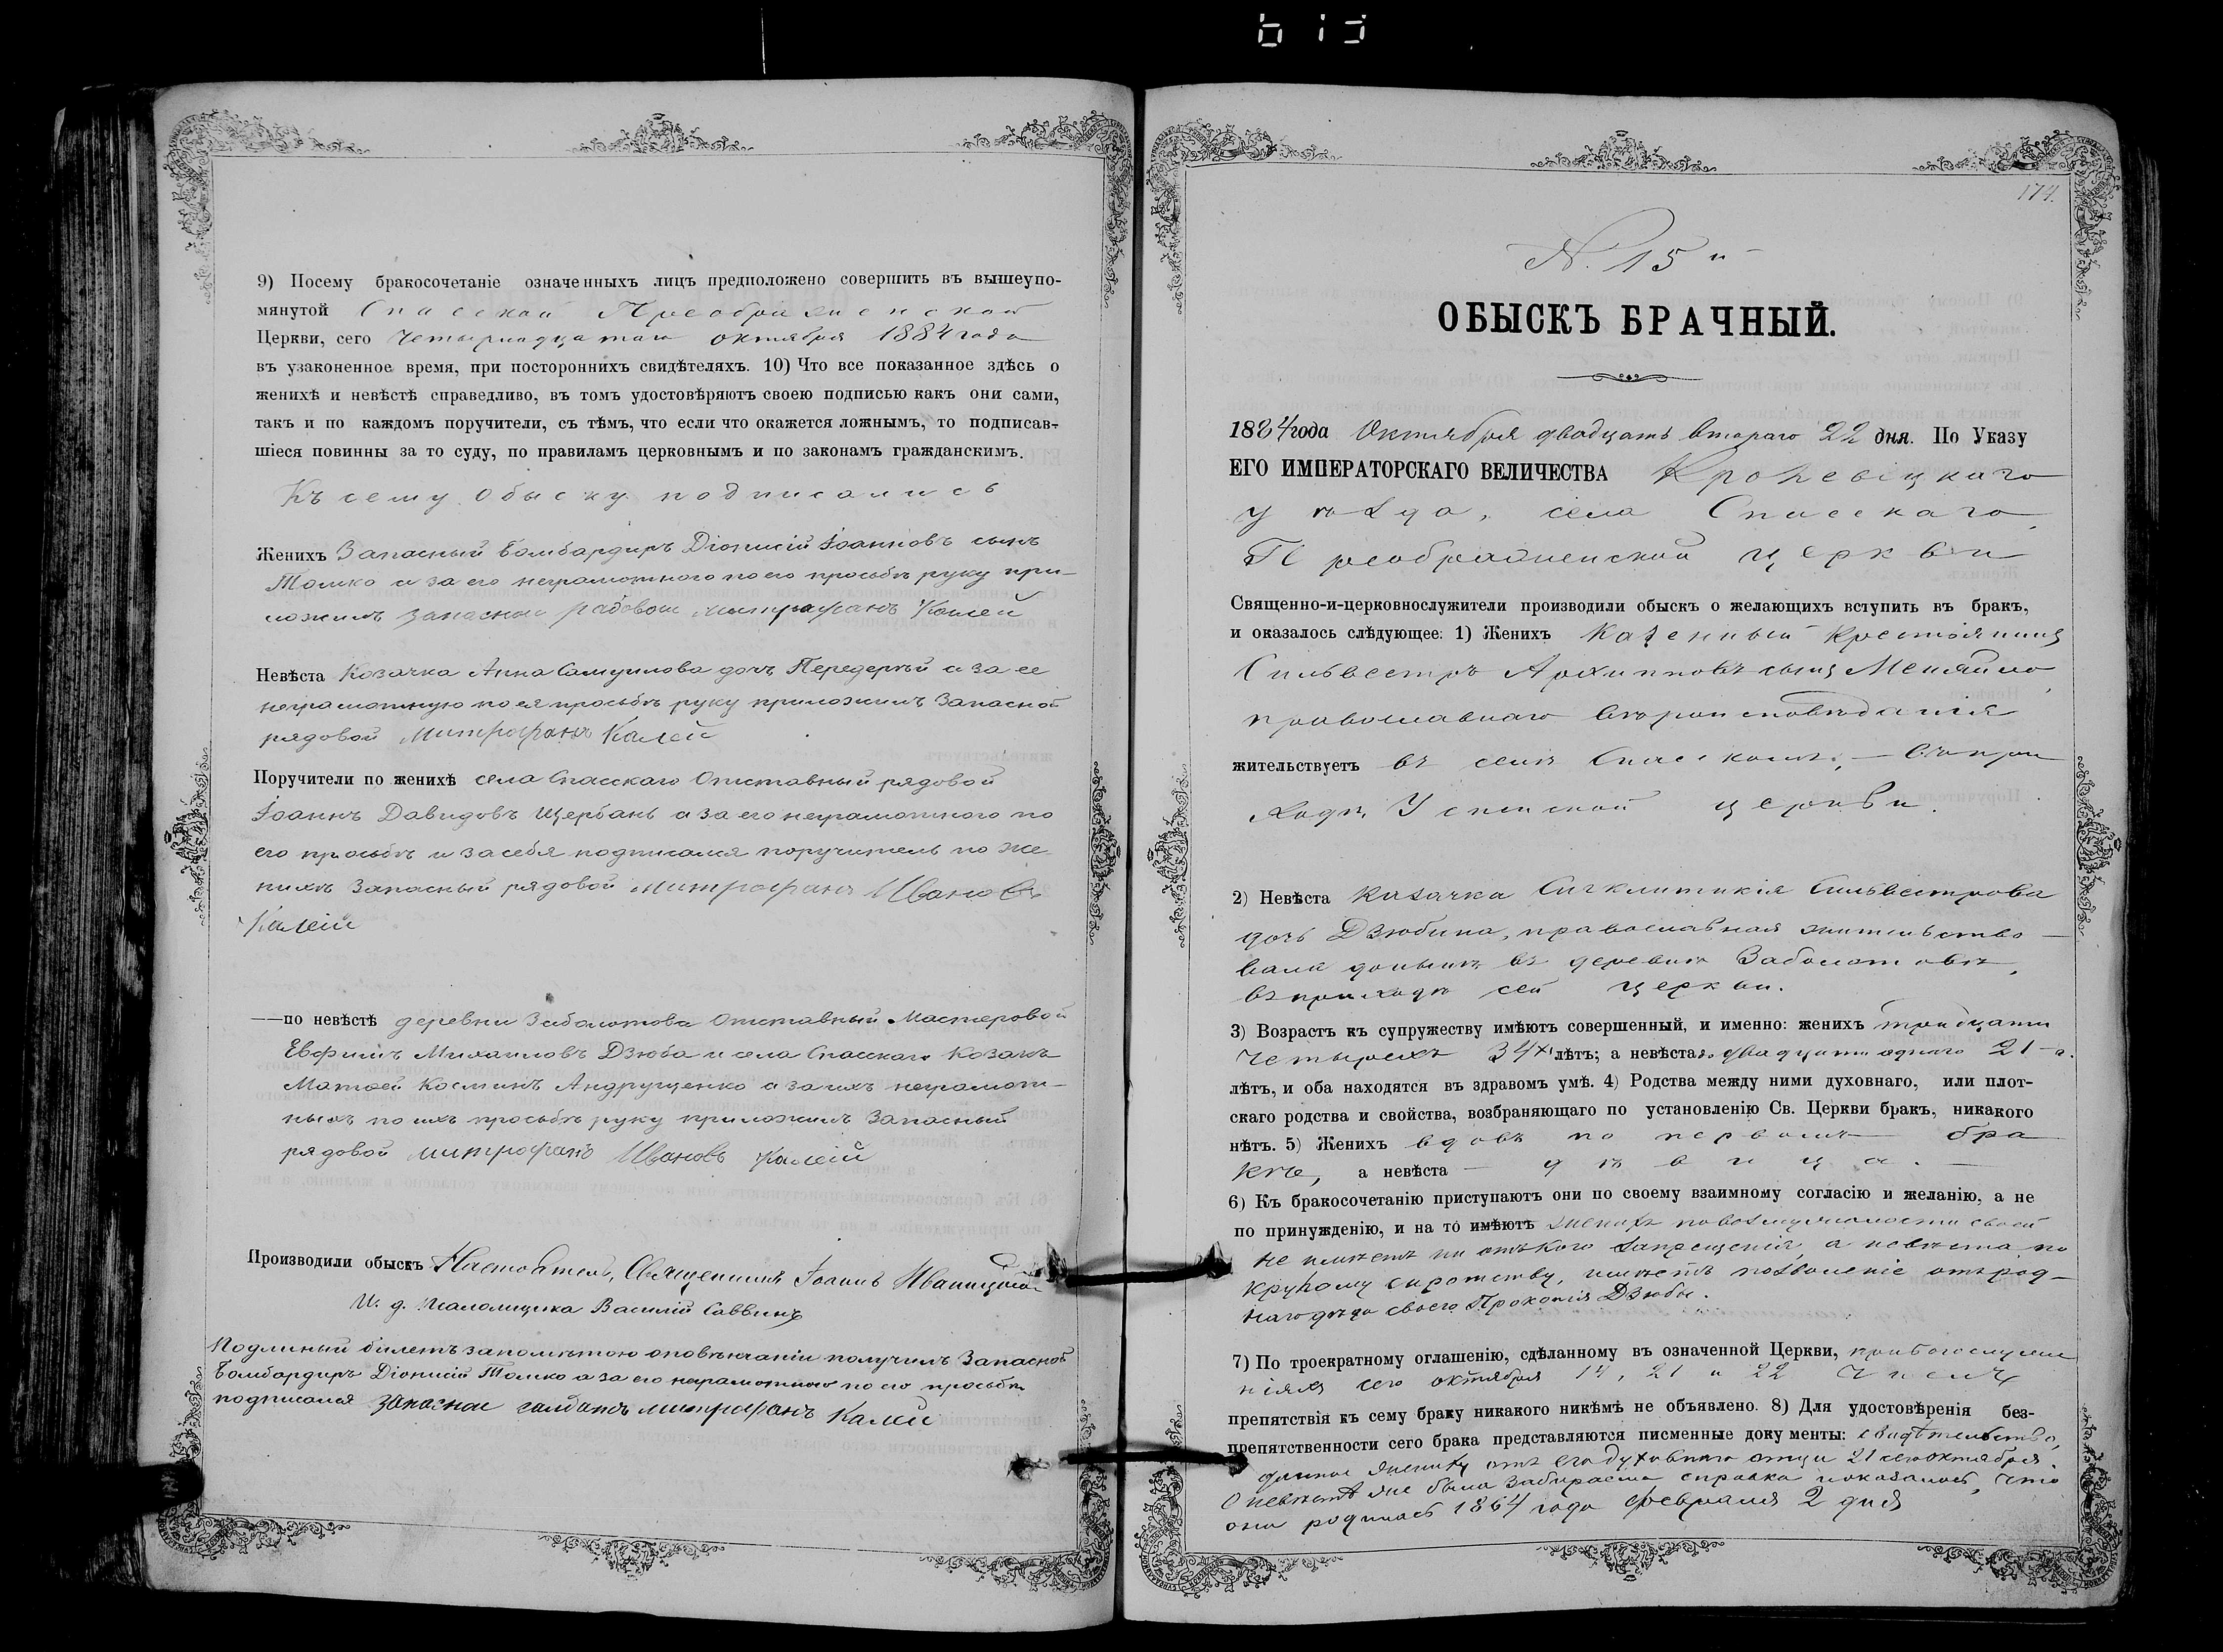 9) Посему бракосочетаніе означенныхъ лицъ предположено совершить въ вышеупо-
мянутой Спасской Преображенской
Церкви, сего Четырнадцатаго октября 1884 года
въ узаконенное время, при постороннихъ свидѣтеляхъ. 10) Что все показанное здѣсь о
женихѣ и невѣстѣ справедливо, въ томъ удостовѣряютъ своею подписью какъ они сами,
такъ и по каждомъ поручители, съ тѣмъ, что если что окажется ложнымъ, то подписав-
шіеся повинны за то суду, по правиламъ церковнымъ и по законамъ гражданскимъ.
Къ сему обыску подписались
Женихъ Запасный Бомбардиръ Діонисій Іоанновъ сынъ
Томко а за его неграмотного по его просьбѣ руку при-
ложилъ запасной радовои митрафанъ Калей
Невѣста Козачка Анна Самуилова дочь Передерѣй а за ее
неграмотную по ея просьбѣ руку приложилъ Запасной
рядовой Митрофанъ Калей
Поручители по женихѣ села Спасскаго Отставный рядовой
Іоаннъ Давидовъ Щербань а за его неграмотного по
его просьбѣ и за себя подписался поручитель по же
нихѣ Запасный рядовой митрофанъ Ивановъ
Калеій
—по невѣстѣ деревни Заболотова Отставный Мастеровой
Евфимъ Михаиловъ Дзюба и села Спасскаго Козакъ
Матѳей Косминъ Андрущенко а за ихъ неграмот-
ныхъ по ихъ просьбѣ руку приложилъ Запасный
рядовой митрофанъ Ивановъ Калеій
Производили обыскъ Настоятель, Священникъ Іоаннъ Иваницкій
И. д. Псаломщика Василій Саввинъ
Подлиный билетъ за помѣтою о повѣнчаніи получилъ Запасной
Бомбардиръ Діонисій Томко а за его неграмотного по его просьбѣ
подписался запасное салдатъ митрофанъ Калей
174.
N. 15 й
ОБЫСКЪ БРАЧНЫЙ.
1884 года Октября двадцать втораго 22 дня. По Указу
ЕГО ИМПЕРАТОРСКАГО ВЕЛИЧЕСТВА Кролевецкаго
уѣзда, села Спасскаго,
Преображенской церкви
Священно-и-церковнослужители производили обыскъ о желающихъ вступить въ бракъ,
и оказалось слѣдующее: 1) Женихъ Казенный Крестьянинъ
Сильвестръ Архипповъ сынъ Меняйло,
православнаго вѣроисповѣданія
жительствуетъ въ селѣ Спасскомъ, — въ при
ходѣ Успенской церкви.
2) Невѣста Казачка Сигклитикія Сильвестрова
дочь Дзюбина, православная жительство—
вала донынѣ въ деревнѣ Заболотовѣ,
въ приходѣ сей церкви.
3) Возрастъ къ супружеству имѣютъ совершенный, и именно: женихъ тридцати
Четырехъ 34х лѣтъ; а невѣста двадцати одного 21—г.
лѣтъ, и оба находятся въ здравомъ умѣ. 4) Родства между ними духовнаго, или плот-
скаго родства и свойства, возбраняющаго по установленію Св. Церкви бракъ, никакого
нѣтъ. 5) Женихъ вдовъ по первомъ бра
кѣ, а невѣста — дѣвица. —
6) Къ бракосочетанію приступаютъ они по своему взаимному согласію и желанію, а не
по принужденію, и на то имѣютъ женихъ по возмужалости своей
не имѣетъ ни отъ кого запрещенія, а невѣста по
круглому сиротству, имѣетъ позволеніе отъ род—
наго дѣда своего Прокопія Дзюбы.
7) По троекратному оглашенію, сдѣланному въ означенной Церкви, при богослуже
ніяхъ сего октября 14, 21 и 22 Чиселъ
препятствія къ сему браку никакого никѣмъ не объявлено. 8) Для удостовѣренія без-
препятственности сего брака представляются писменные документы: свидѣтельство,
данное жениху отъ его духовнаго отца 21 сего октября.
О невѣстѣ же была забираема справка показалось, что
она родилась 1864 года февраля 2 дня